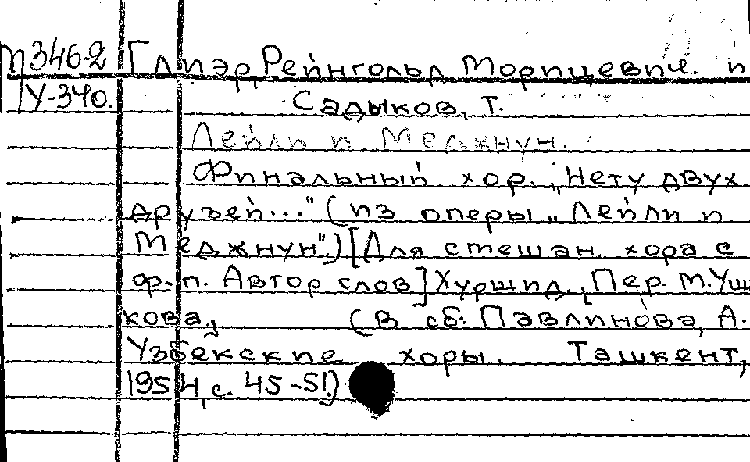 М346-2 Глиэр, Рейнгольд Морицевич. и
IУ-340. Садыков, Т.
Лейли и Меджнун.
Финальный хор. „Нету двух
друзей..." (из оперы „Лейли и
Меджнун".) [Для смешан. хора с
ф.-п. Автор слов] Хуршид. [Пер. М. Уш
кова., (в сб: Павлинова, А.
Узбекские хоры. Ташкент,
1954, с. 45-51.)